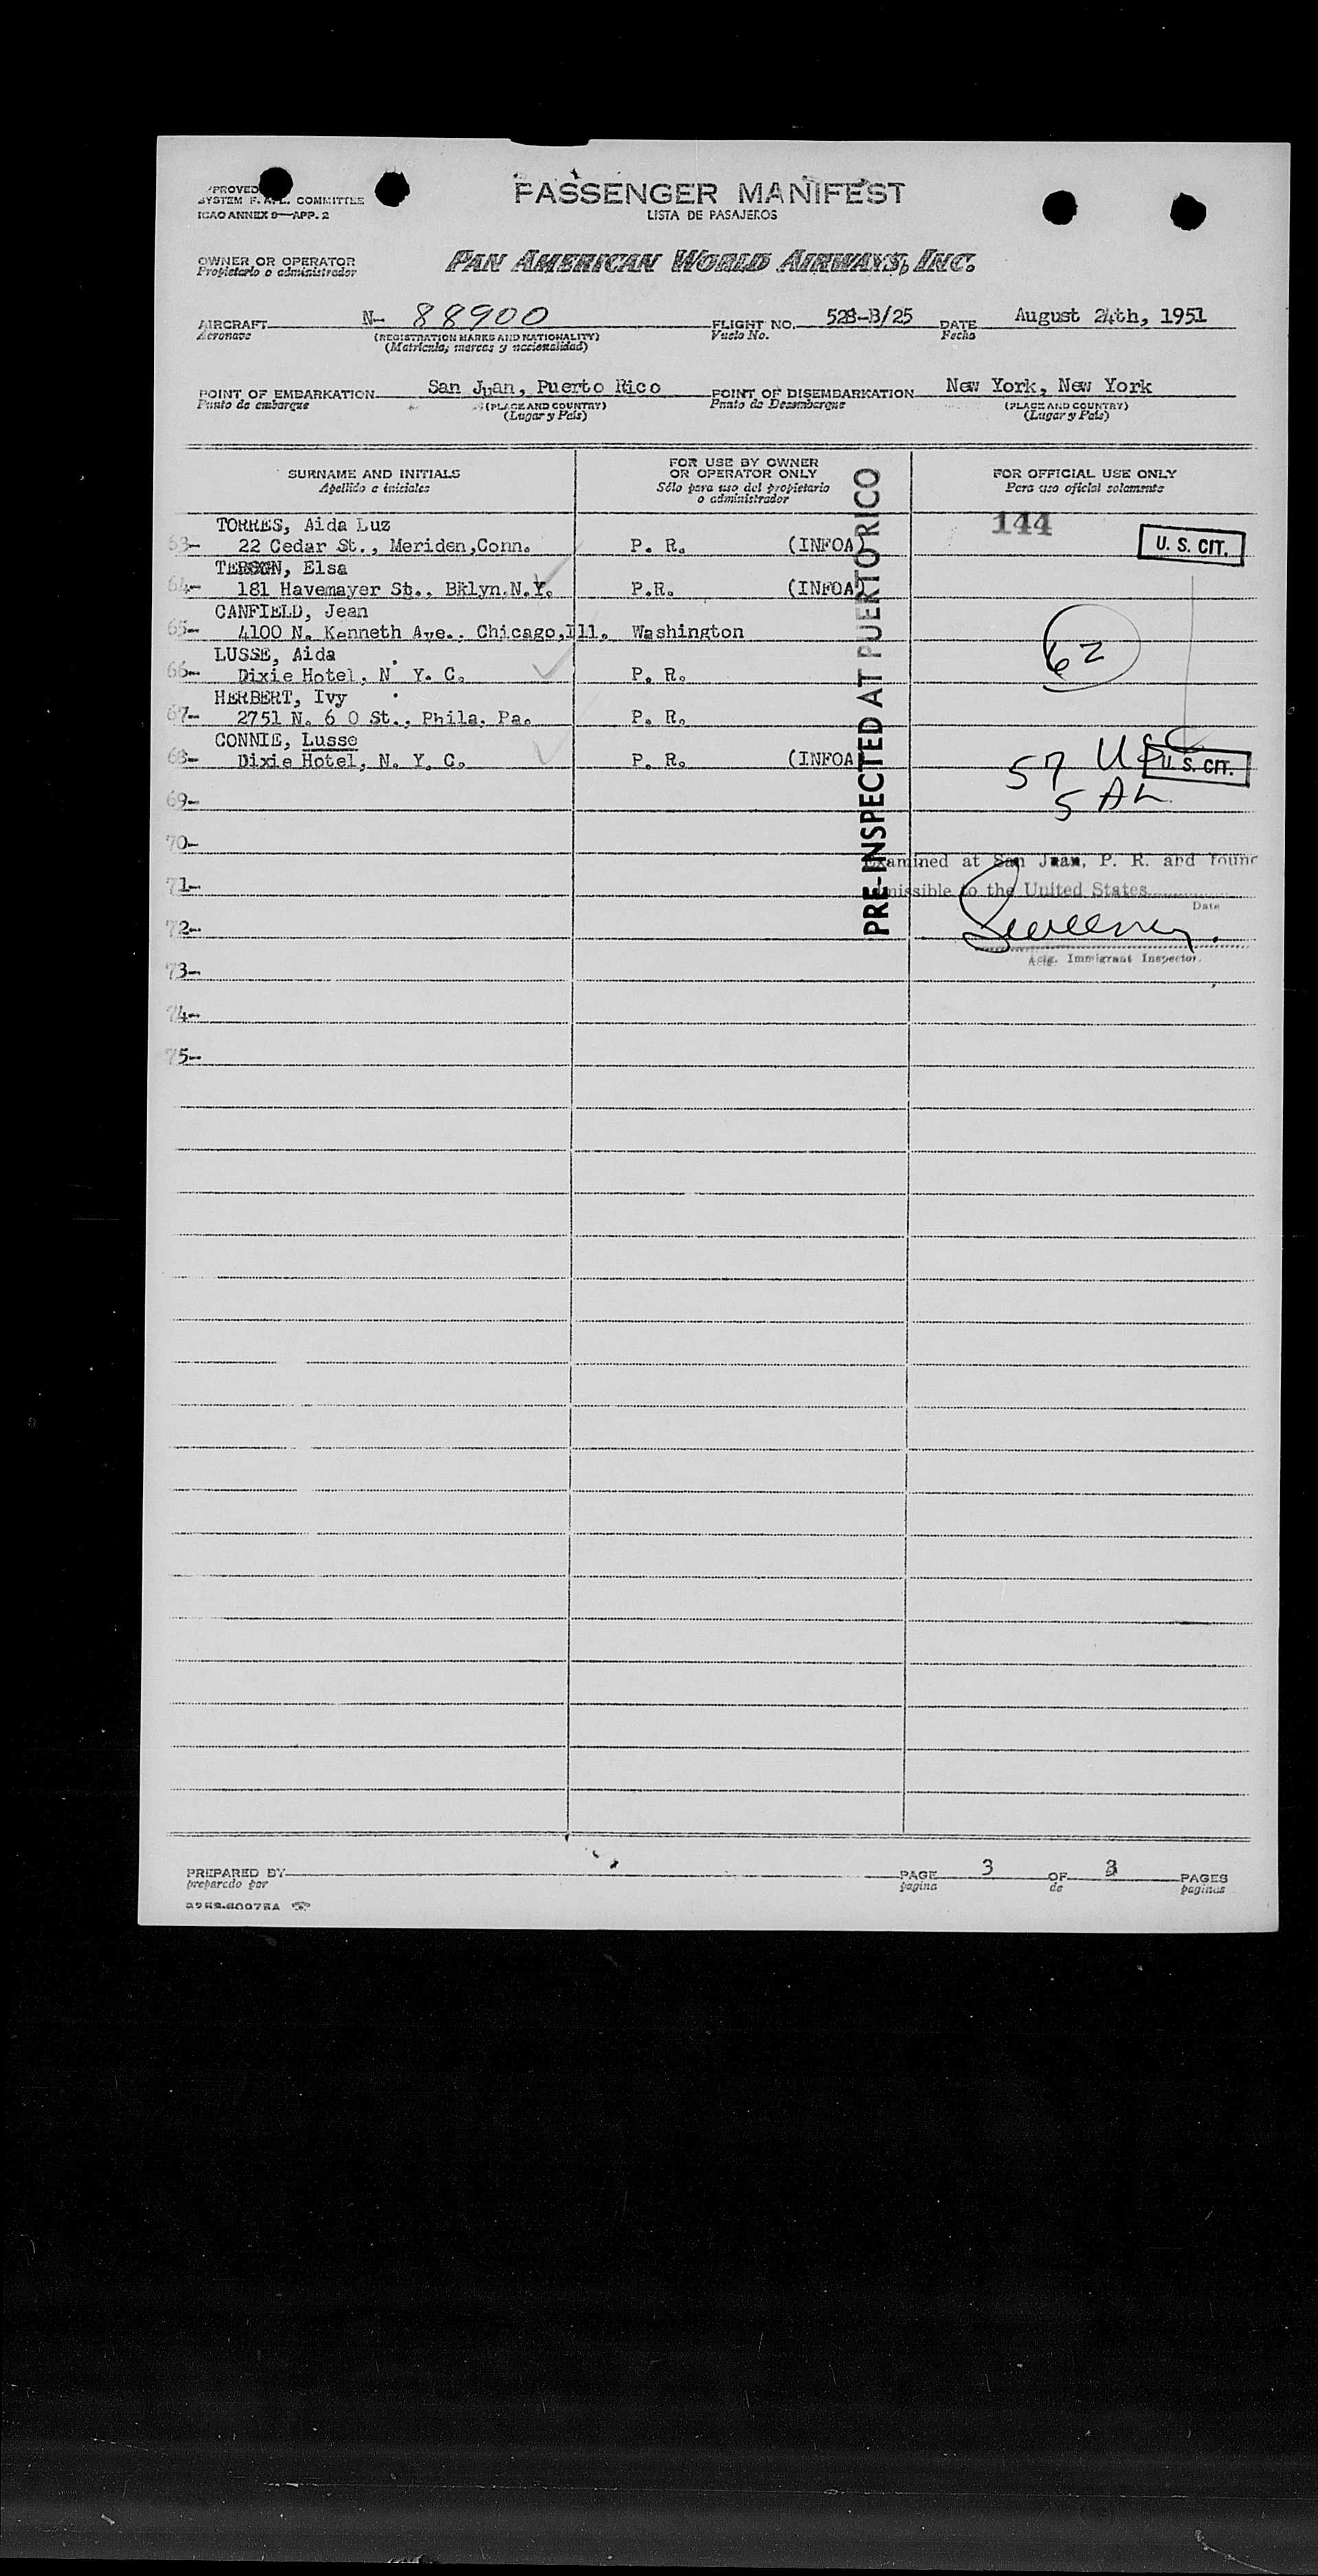 PASSENGER MANIFEST
LISTA DE PASAJEROS
SYSTEM F. A. L. COMMITTEE
ICAO ANNEX 9—APP. 2
OWNER OR OPERATOR
Propietario o administrador
PAN AMERICAN WORLD AIRWAYS, INC.
AIRCRAFT N- 88900 FLIGHT NO. 528-B/25 DATE August 24th, 1951
Aeronave (REGISTRATION MARKS AND NATIONALITY) Vuelo No. Fecha
(Matricula, marcas y nacionalidad)
POINT OF EMBARKATION San Juan, Puerto Rico POINT OF DISEMBARKATION New York, New York
Punto de embarque (PLACE AND COUNTRY) Punto de Desembarque (PLACE AND COUNTRY)
(Lugar y País) (Lugar y País)
SURNAME AND INITIALS
Apellido e iniciales
FOR USE BY OWNER
OR OPERATOR ONLY
Sólo para uso del propietario
o administrador
FOR OFFICIAL USE ONLY
Para uso oficial solamente
PRE-INSPECTED AT PUERTO RICO
TORRES, Aida Luz 144
63- 22 Cedar St., Meriden,Conn. P. R. (INFOA) U. S. CIT.
Elsa
64- 181 Havemayer St., Bklyn.N.Y. P.R. (INFOA)
CANFIELD, Jean
65- 4100 N. Kenneth Ave., Chicago,Ill. Washington
62
LUSSE, Aida
66- Dixie Hotel, N Y. C. P. R.
HERBERT, Ivy
67- 2751 N. 6 0 St., Phila. Pa. P. R.
CONNIE, Lusse
68- Dixie Hotel, N. Y. C. P. R. (INFOA 57 USC U. S. CIT.
69- 5 AL
70-
Examined at San Juan, P. R. and found
71- missible to the United States
Date
72- Sweeney.
Actg. Immigrant Inspector.
73-
74-
75-
PREPARED BY PAGE 3 OF 3 PAGES
preparado por pagina de paginas